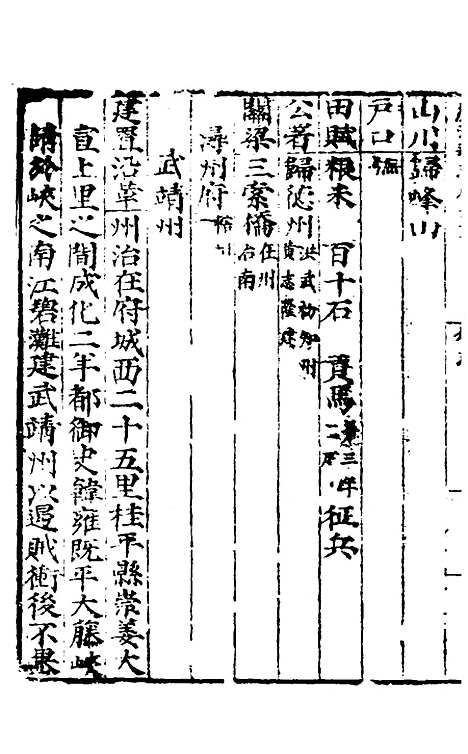 山川歸峰山
戶口無
田賦粮米 百十石 貢馬三年 征兵
公署歸德州洪武初知州黃志隆建
關梁三寨橋在州治南
潯州府
武靖州
建置沿革州治在府城西二十五里桂平縣崇姜大
宣上里之間成化二年都御史韓雍既平大藤峽
請於峽之南江碧灘建武靖州以遏賊衝後不果